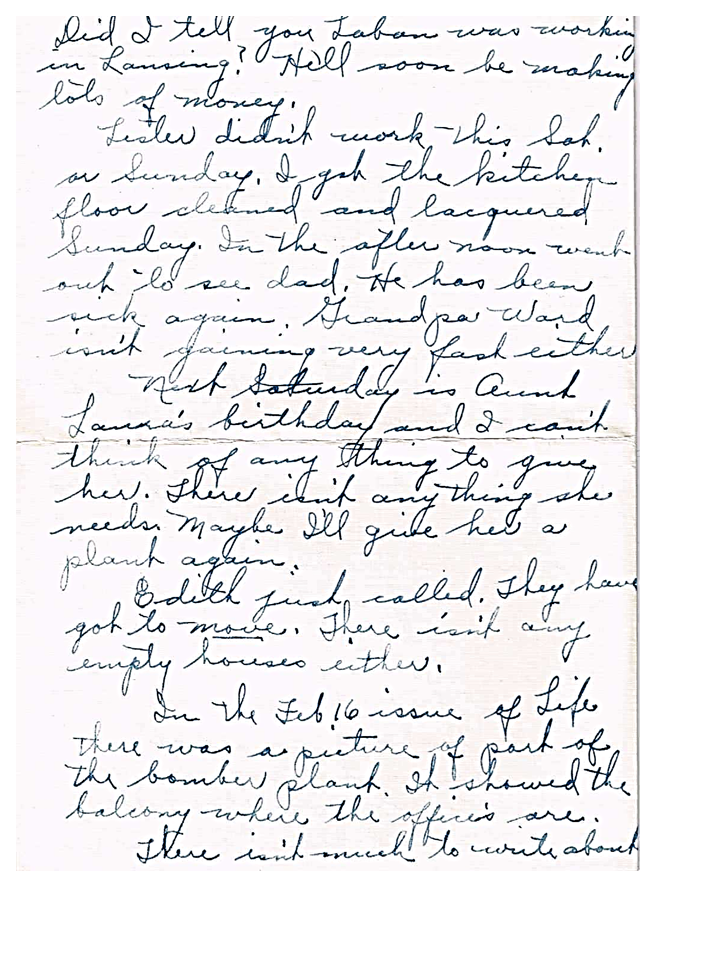 Did I tell you Laban was working
in Lansing? He'll soon be making
lots of money.
Lester didn't work this Sat.
or Sunday. I got the kitchen
floor cleaned and lacquered
Sunday. In the after noon went
out to see dad. He has been
sick again. Grandpa Ward
isn't gaining very fast either
Next Saturday is Aunt
Laura's birthday and I can't
think of any thing to give
her. There isn't any thing she
needs. Maybe I'll give her a
plant again.
Edith just called. They have
got to move. There isn't any
empty houses either.
In the Feb 16 issue of Life
there was a picture of part of
the bomber plant. It showed the
balcony where the offices are.
There isn't much to write about